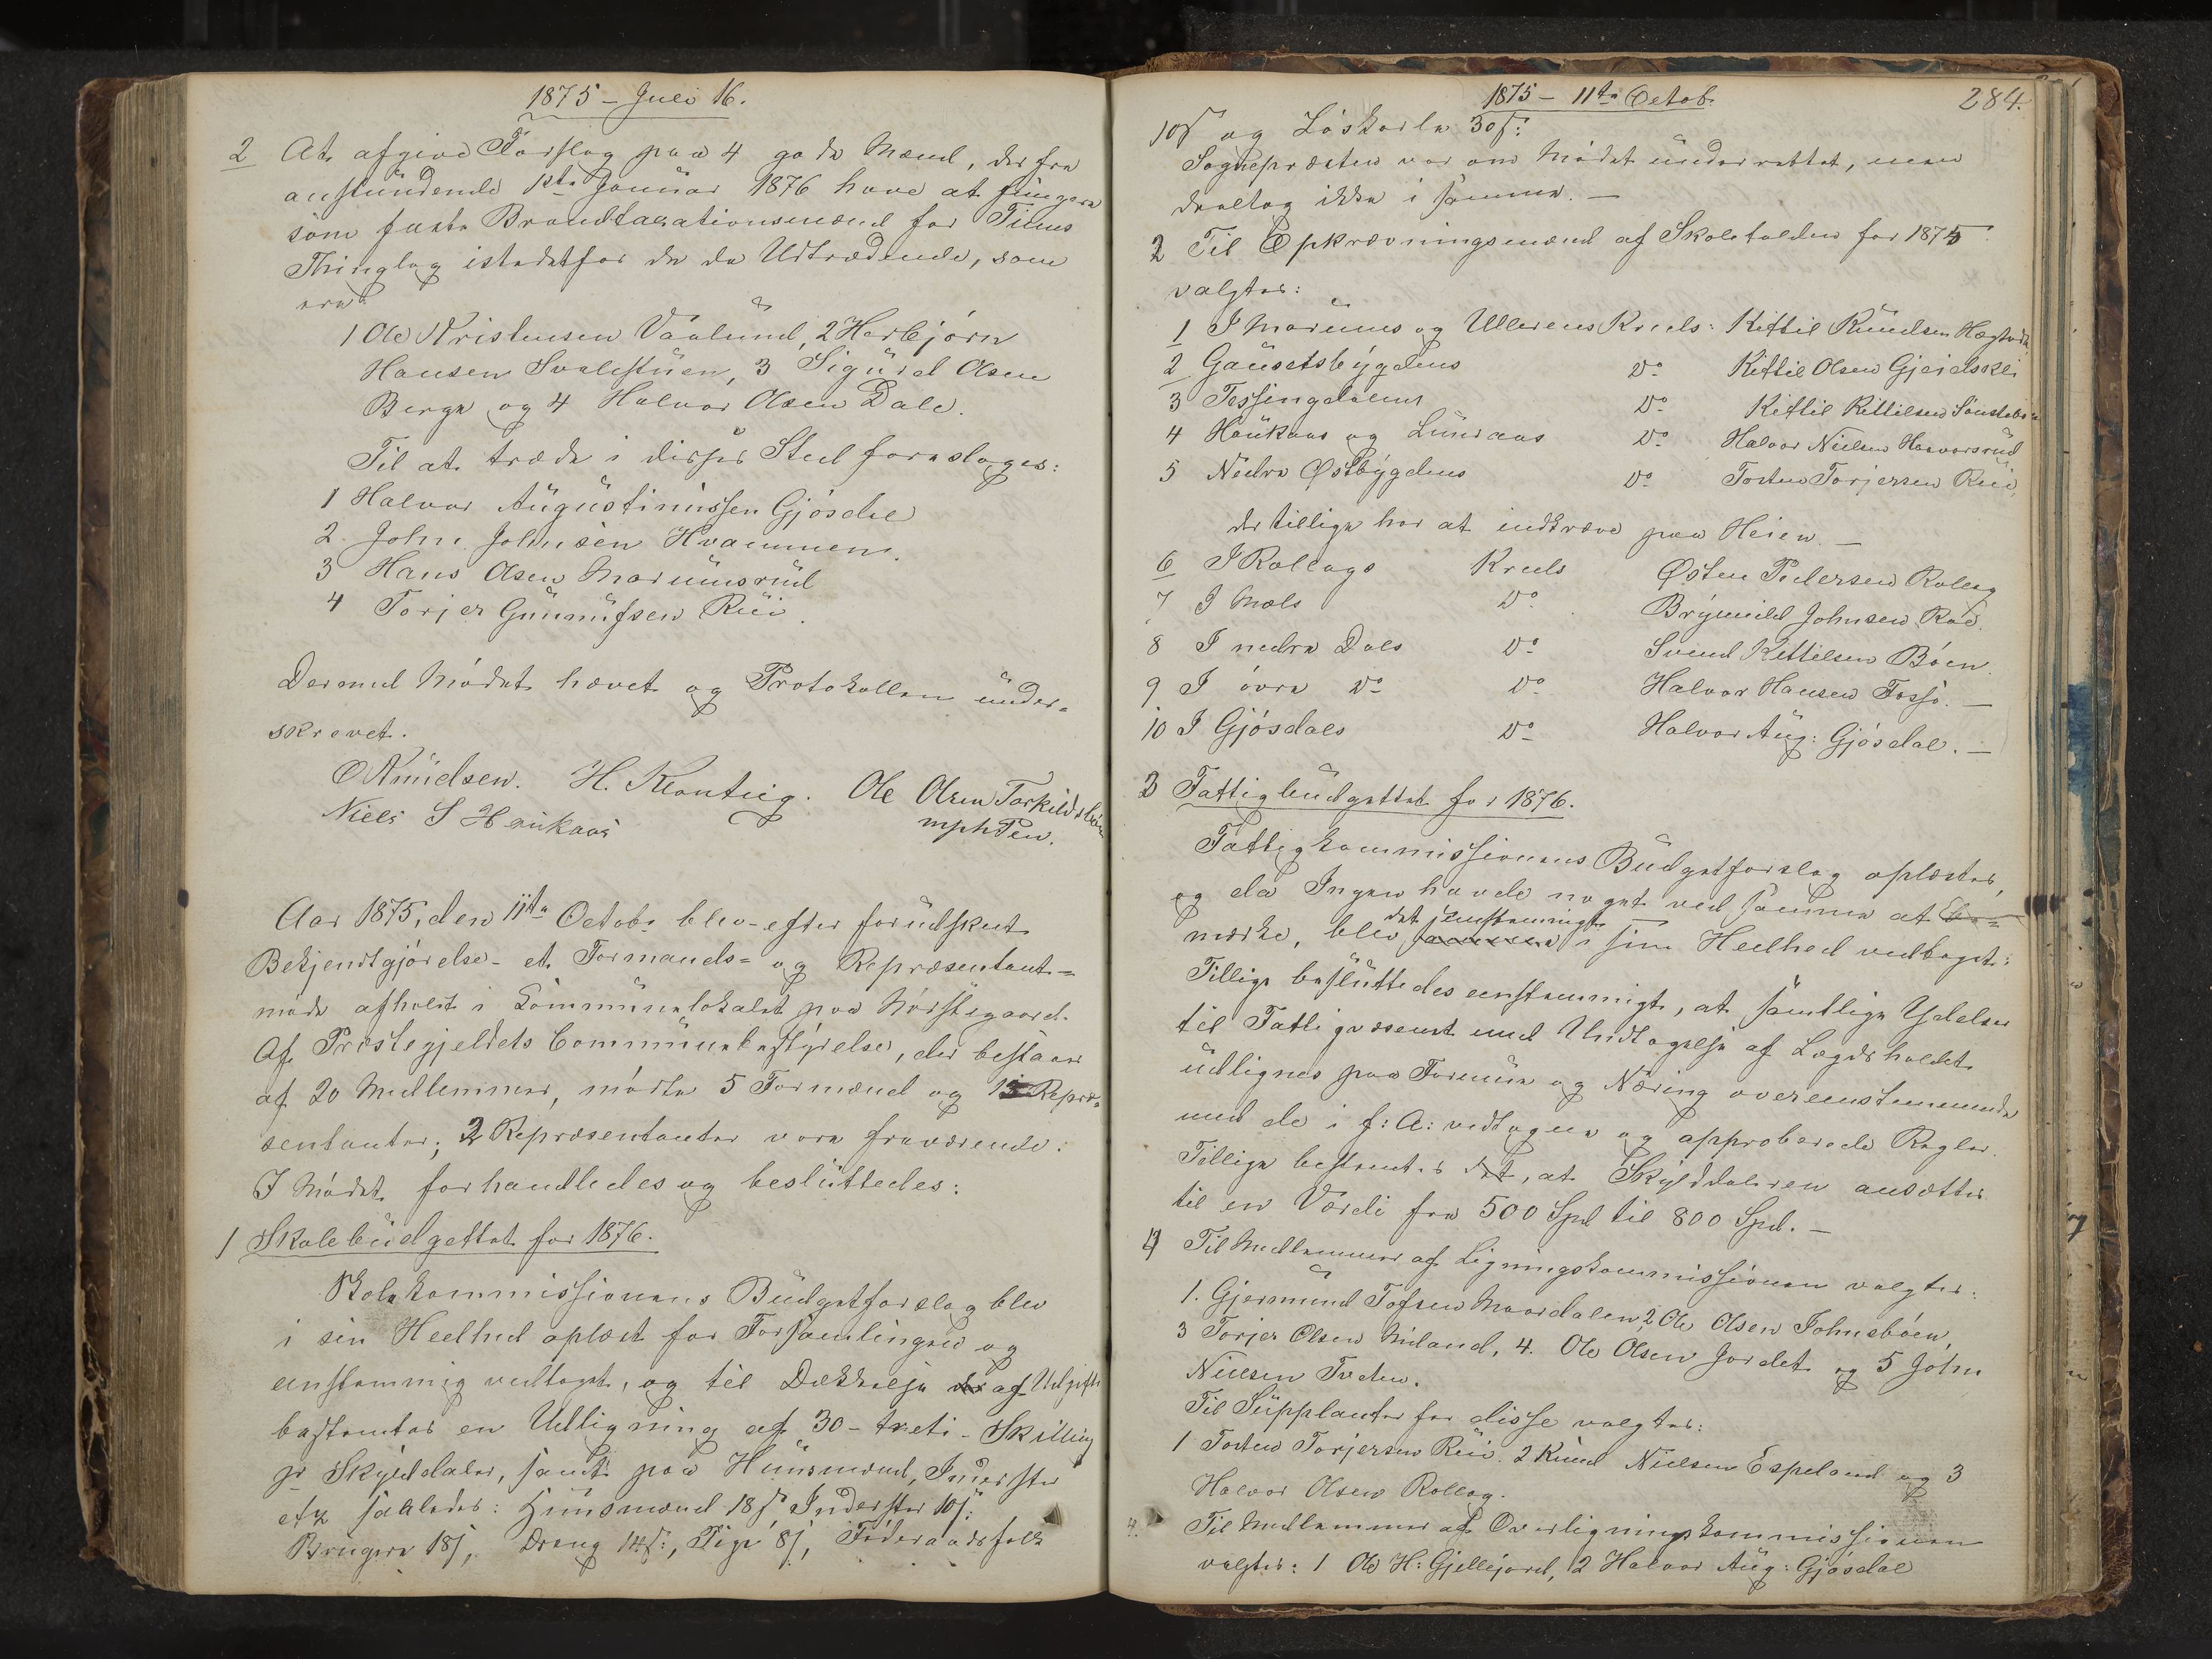 1875 - Juli 16.
2 At afgive Forslag paa 4 gode Mænd, der fra
anstundende 1ste Januar 1876 have at fungere
som faste Brandtaxationsmænd for Tinns
Thinglag istedetfor de da Udtrædende, som
ere
1 Ole Kristensen Vaalund, 2 Herbjørn
Hansen Svalestuen, 3 Sigurd Olsen
Berge og 4 Halvor Olsen Dale.
Til at træde i disses Sted foresloges:
1 Halvor Augustinussen Gjøsdal
2. John Johnsen Hvammen.
3 Hans Olsen Marumsrud
4 Torjer Gunnufsen Rui.
Dermed Mødet hævet og Protokollen under-
skrevet.
O Knudsen. H. Klonteig. Ole Olsen Torkildsbøen
Niels S Haukaas mph Pen.
Aar 1875, den 11te Octobr blev - efter forudskeet
Bekjendtgjørelse - et Formands- og Repræsentant-
møde afholdt i Communelokalet paa Nørstegaard.
Af Præstegjeldets Communebestyrelse, der bestaar
af 20 Medlemmer, mødte 5 Formænd og 13 Repræ-
sentanter; 2 Repræsentanter vare fraværende.
I Mødet forhandledes og besluttedes:
1 Skolebudgettet for 1876.
Skolekommissionens Budgetforslag blev
i sin Heelhed oplæst for Forsamlingen og
eenstemmig vedtaget, og til Dækkelse af Udgifte
bestemtes en Udligning af 30 - treti - Skilling
pr Skylddaler, samt paa Huusmænd, Inderster
etc saaledes: Huusmænd 18 ß, Inderster 10 ß:
Brugere 18 ß, Dreng 14 ß:, Pige 8 ß, Føderaadsfolk
1875 - 11te Octob. 284.
10 ß og Løskarle 30 ß:
Sognepræsten var om Mødet underrettet, men
deeltog ikke i samme. —
2 Til Opkrævningsmænd af Skoletolden for 1875
valgtes:
1 I Marums og Ullerens Kreds: Kittil Knudsen Hægtvedt
2 Gausetsbygdens Do Kittil Olsen Gjeidsklei
3 Tessingdalens Do Kittil Kittilsen Sønstebø
4 Haukaas og Luuraas Do Halvor Nielsen Haavorsrud
5 Nedre Østbygdens Do Torsten Torjersen Rui,
der tillige har at indkræve paa Heien. —
6 I Rollags Kreds Østen Pedersen Rollag
7 I Mæls Do Brynild Johnsen Roe.
8 I nedre Dals Do Svend Kittilsen Bøen.
9 I øvre Do Do Halvor Hansen Fossø. —
10 I Gjøsdals Do Halvor Aug: Gjøsdal. —
3 Fattigbudgettet for 1876.
Fattigkommissionens Budgetforslag oplæstes,
og da Ingen havde noget ved samme at Be-
mærke, blev det eenstemmigt i sin Heelhed vedtaget.
Tillige besluttedes eenstemmigt, at samtlige Ydelser
til Fattigvæsenet med Undtagelse af Lægdsholdet
udlignes paa Formue og Næring overeensstemmende
med de i f: A: vedtagne og approberede Regler.
Tillige bestemtes det, at Skylddaleren ansættes
til en Værdi fra 500 Spd til 800 Spd. —
4 Til Medlemmer af Ligningskommissionen valgtes:
1. Gjermund Tofsen Maardalen, 2 Ole Olsen Johnsbøen,
3 Torjer Olsen Miland, 4. Ole Olsen Jordet og 5 John
Nielsen Tveten.
Til Supplanter for disse valgtes:
1 Torsten Torjersen Rui. 2 Knud Nielsen Espeland og 3
Halvor Olsen Rollag.
4. Til Medlemmer af Overligningskommissionen
valgtes: 1 Ole H: Gjellejord, 2 Halvor Aug: Gjøsdal